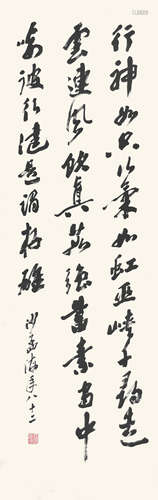 行神如空行氣如虹巫峽千尋走
雲連風飲真茹強蓄素守中
喻彼行健是謂存雄
沙孟海年八十二